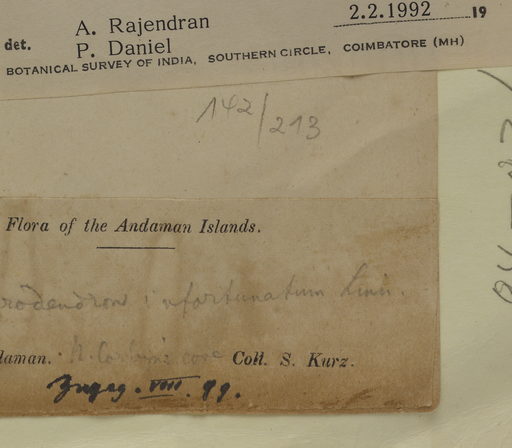 2.2.1992 19
det. A. Rajendran
P. Daniel
BOTANICAL SURVEY OF INDIA, SOUTHERN CIRCLE, COIMBATORE (MH)
142/213
Flora of the Andaman Islands.
rodendron infortunatum Linn.
daman. Coll. S. Kurz.
VIII. 99.